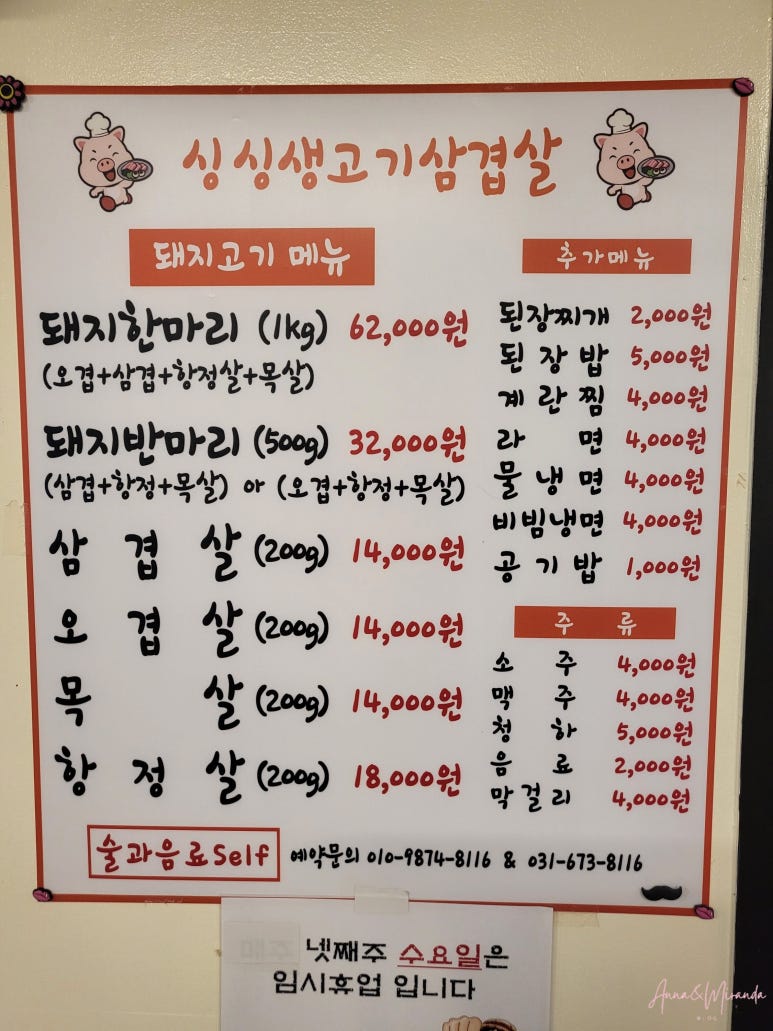 싱싱생고기삼겹살
돼지고기 메뉴
돼지한마리 (1kg) 62,000원
(오겹+삼겹+항정살+목살)
돼지반마리 (500g) 32,000원
(삼겹+항정+목살) or (오겹+항정+목살)
삼 겹 살 (200g) 14,000원
오 겹 살 (200g) 14,000원
목 살 (200g) 14,000원
항 정 살 (200g) 18,000원
추가메뉴
된장찌개 2,000원
된 장 밥 5,000원
계 란 찜 4,000원
라 면 4,000원
물 냉 면 4,000원
비빔냉면 4,000원
공 기 밥 1,000원
주 류
소 주 4,000원
맥 주 4,000원
청 하 5,000원
음 료 2,000원
막 걸 리 4,000원
술과음료Self 예약문의 010-9874-8116 & 031-673-8116
넷째주 수요일은
임시휴업 입니다
Anna&Miranda